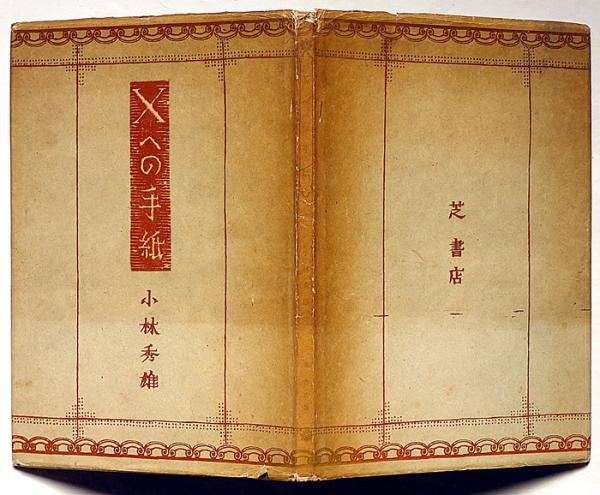 Xへの手紙
小林秀雄
芝書店